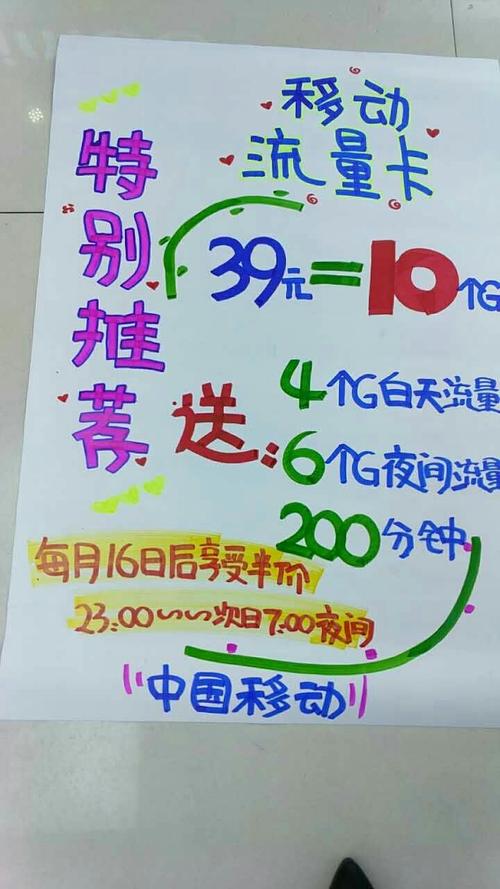 特别推荐
移动
流量卡
39元=10个G
送:
4个G白天流量
6个G夜间流量
200分钟
每月16日后享受半价
23:00~~次日7:00夜间
中国移动